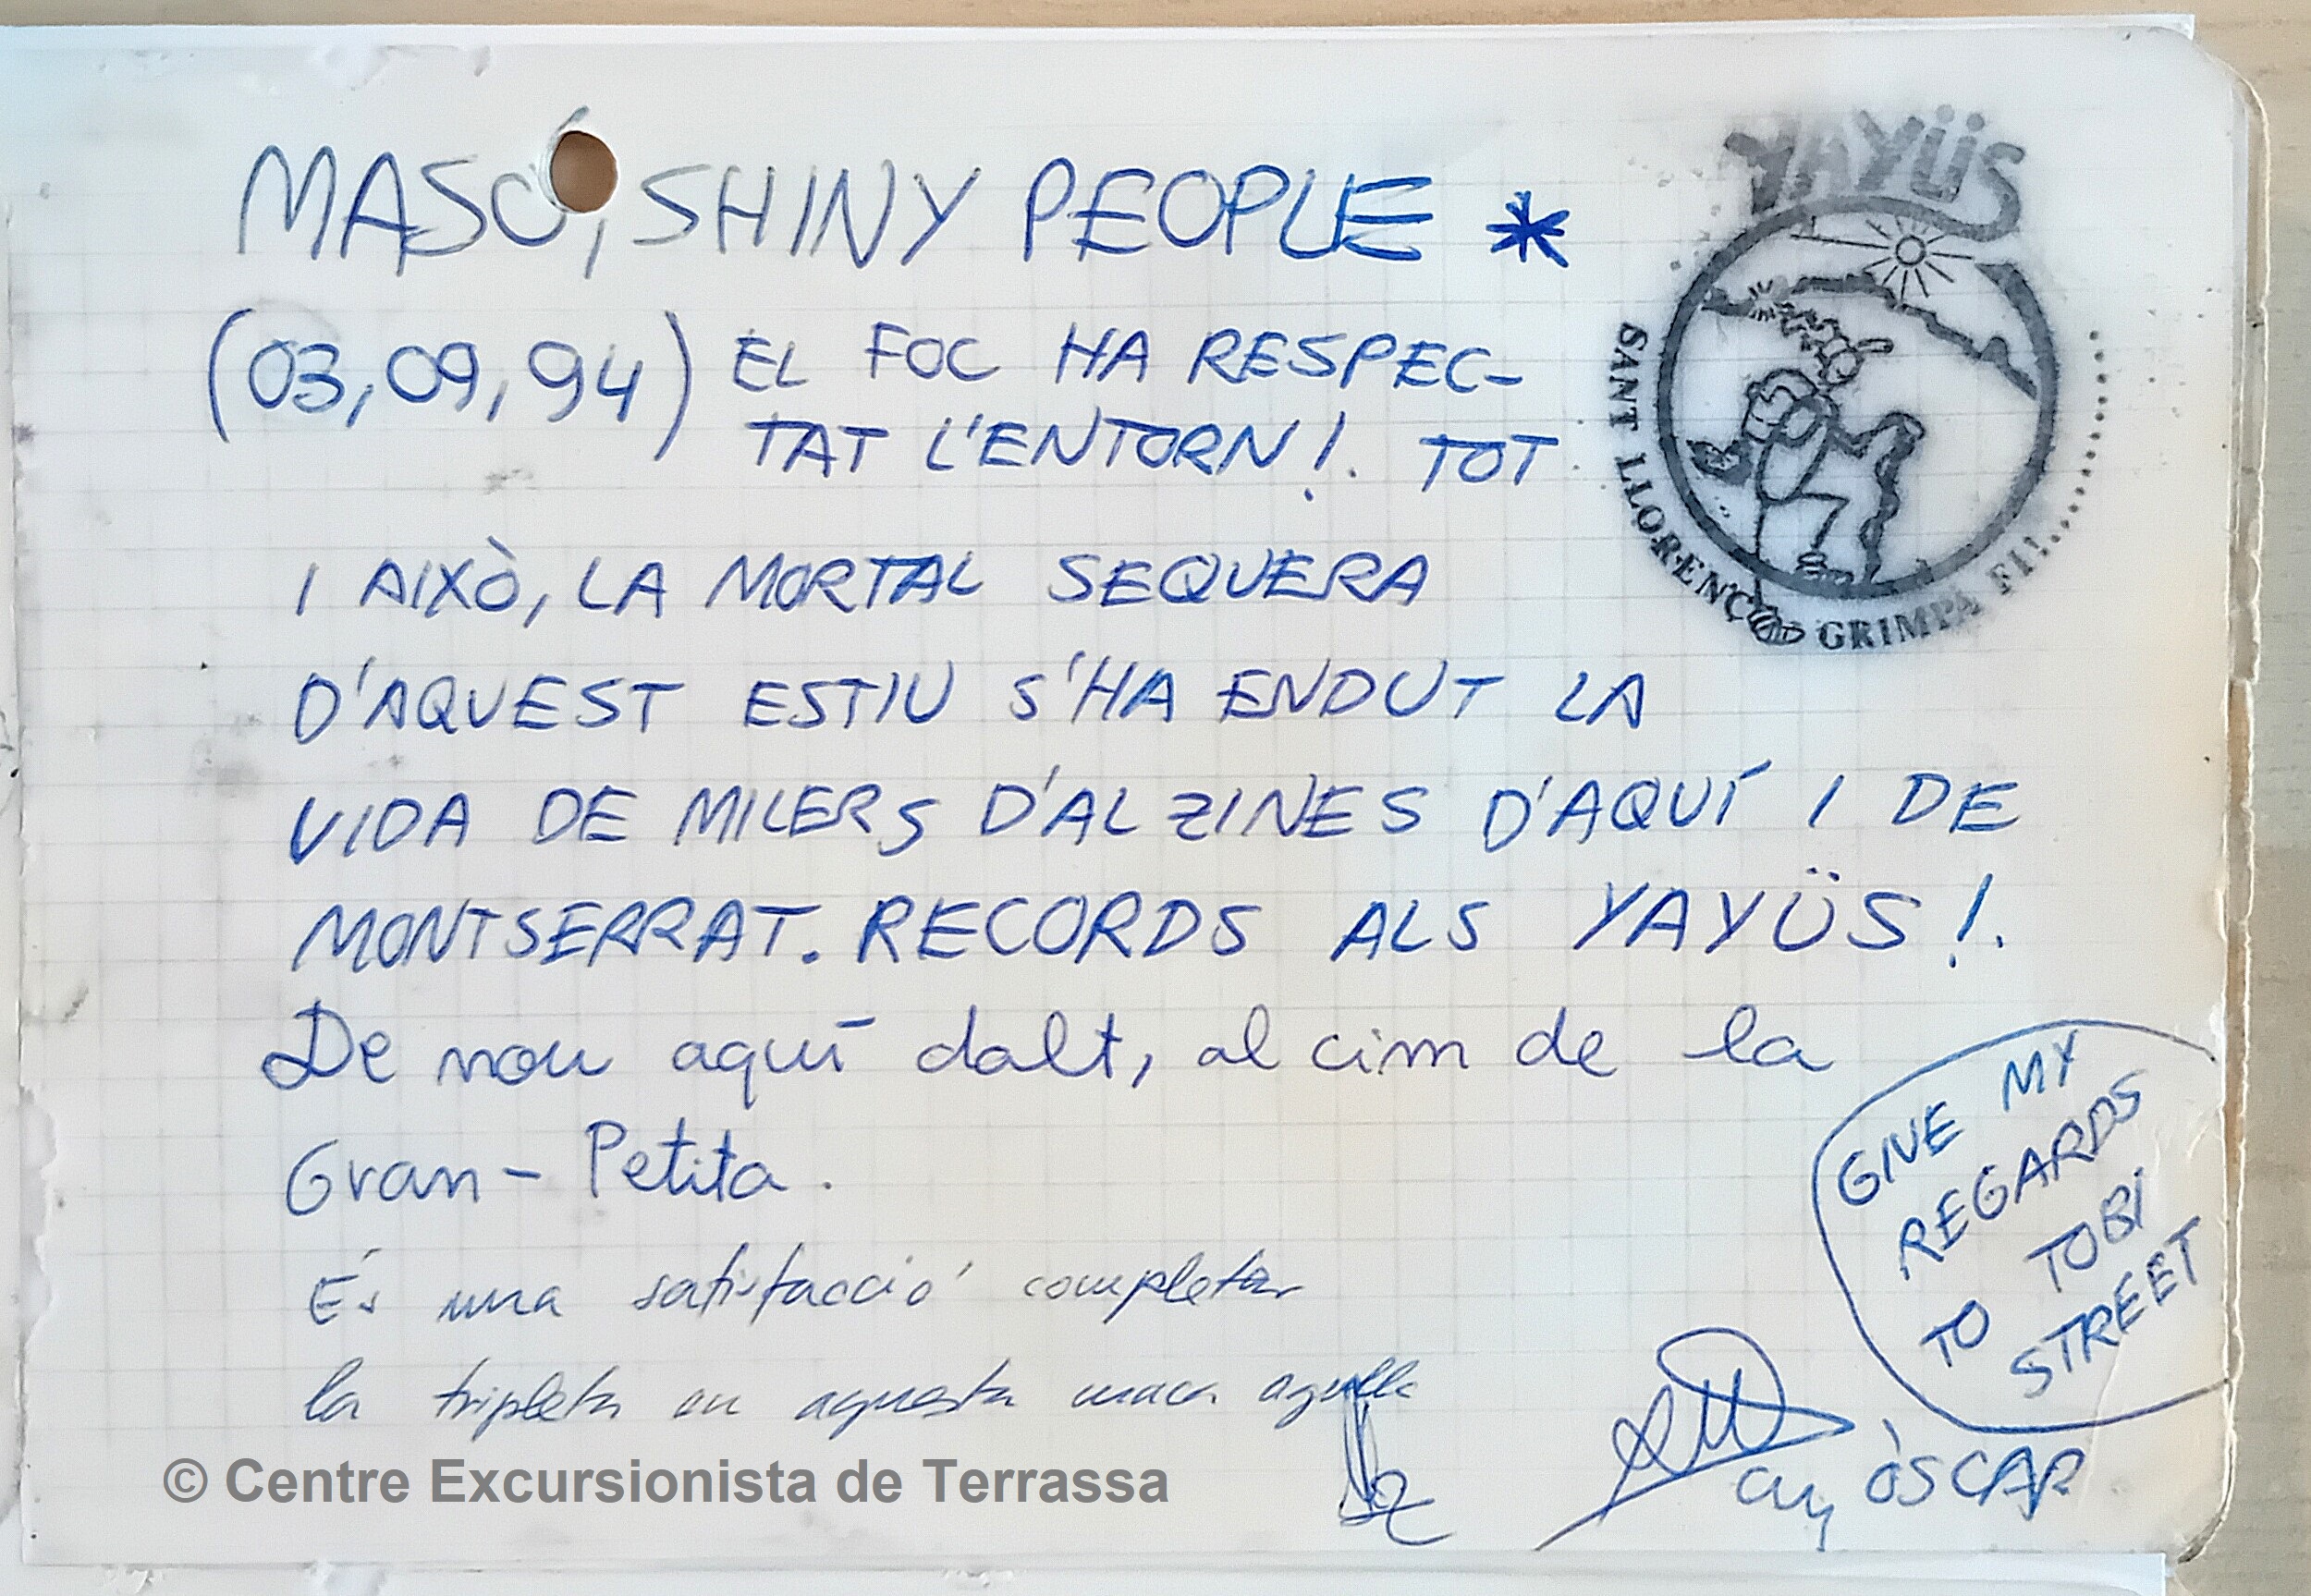 MASÓ, SHINY PEOPLE *
YAYÜS
SANT LLORENÇ GRIMPA FI!..........
(03,09,94) EL FOC HA RESPEC-
TAT L'ENTORN!. TOT
I AIXÒ, LA MORTAL SEQUERA
D'AQUEST ESTIU S'HA ENDUT LA
VIDA DE MILERS D'ALZINES D'AQUÍ I DE
MONTSERRAT. RECORDS ALS YAYÜS!.
De nou aquí dalt, al cim de la
Gran-Petita.
És una satisfacció completar
la tripleta en aquesta maca agulla
GIVE MY
REGARDS
TO TOBI
STREET
ÒSCAR
© Centre Excursionista de Terrassa